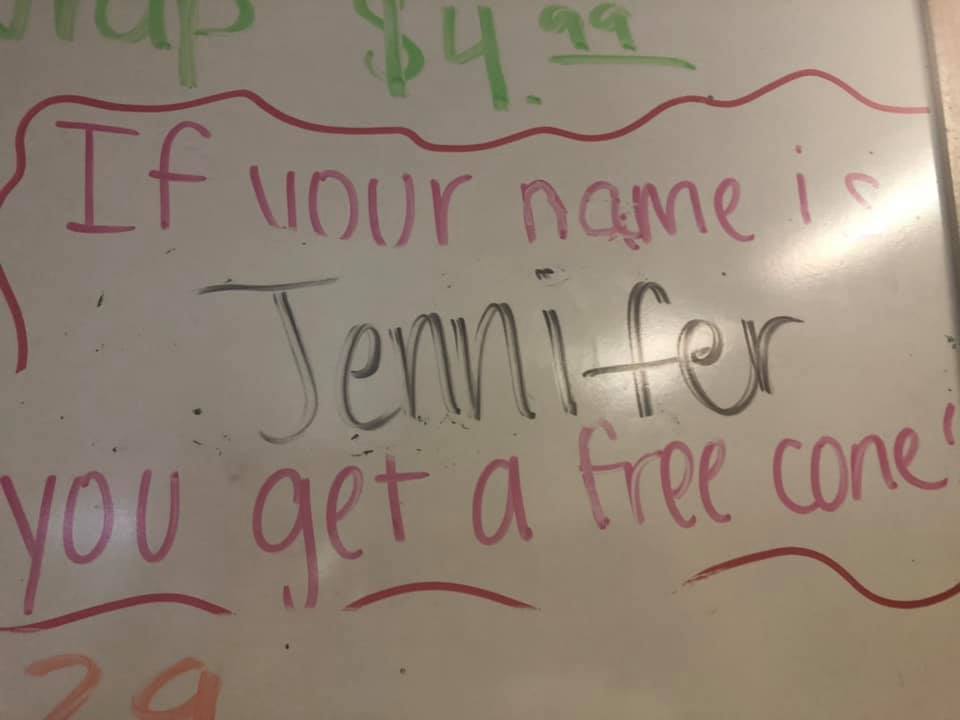 $4.99
If your name is
Jennifer
you get a free cone!
29